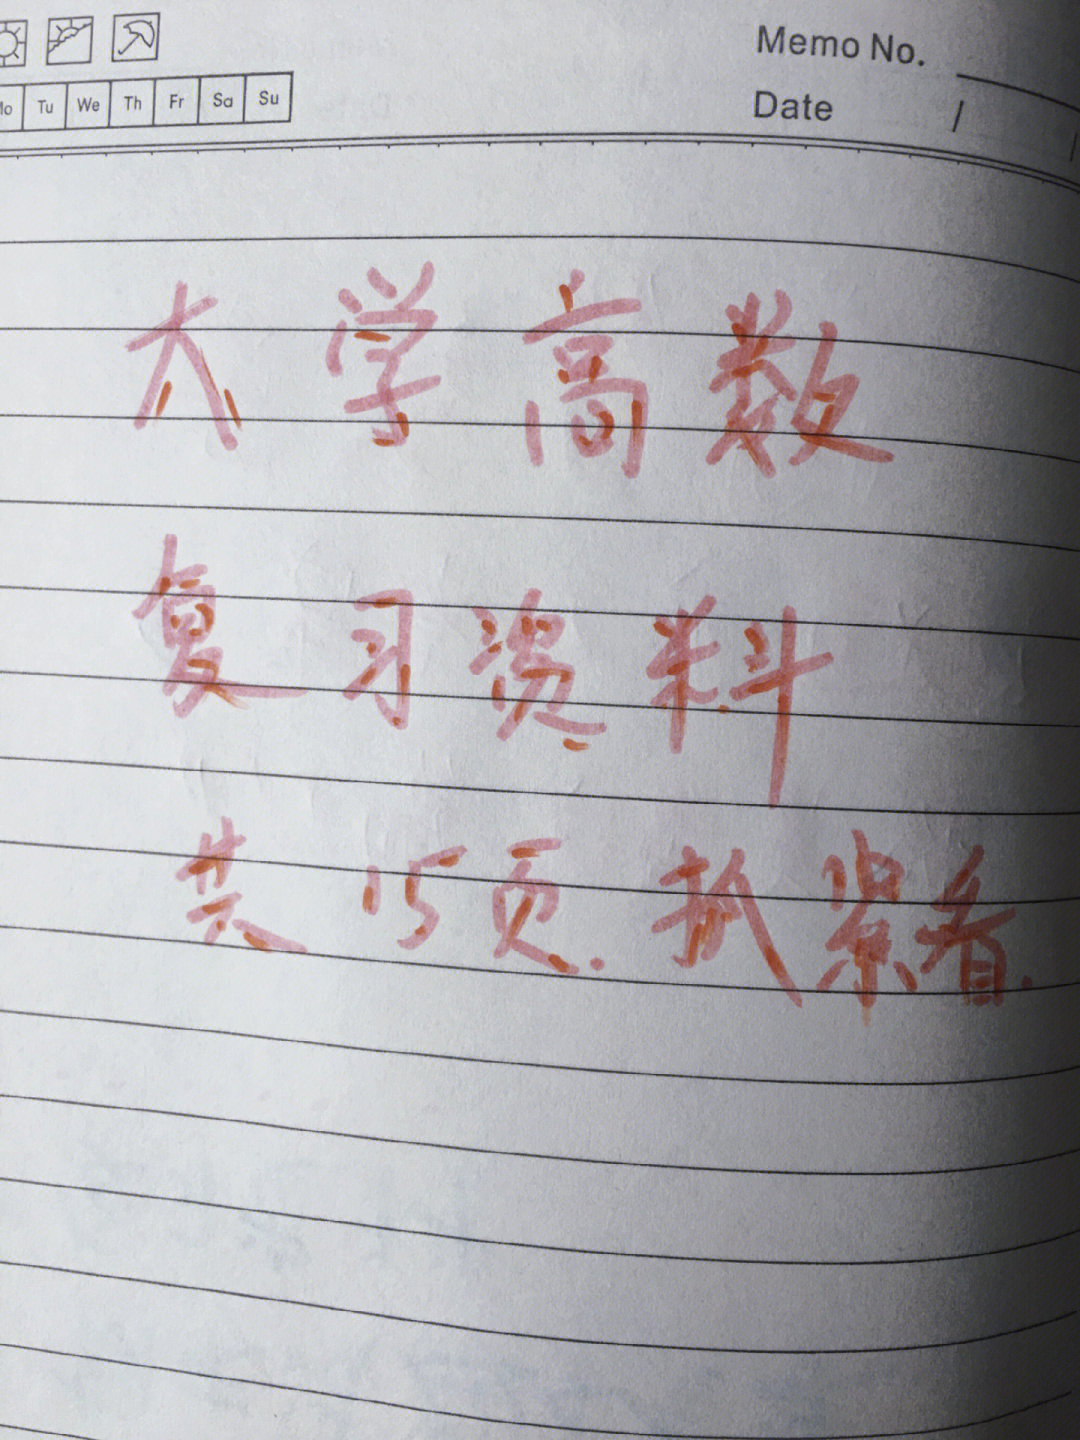 Memo No.
Mo Tu We Th Fr Sa Su
Date / /
大学高数
复习资料
共15页.抓紧看.